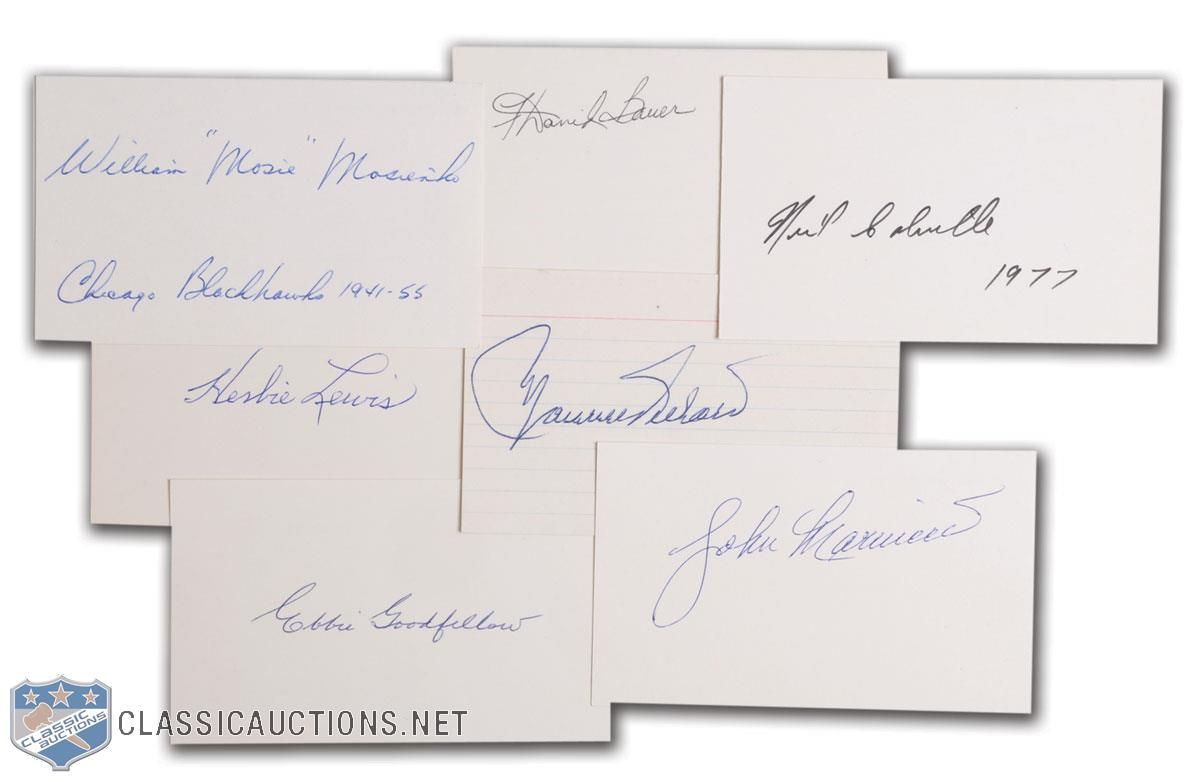 William "Mosie" Mosienko
Chicago Blackhawks 1941-55
F David Bauer
Neil Colville
1977
Herbie Lewis
Maurice Richard
Ebbie Goodfellow
John Mariucci
CLASSIC AUCTIONS
CLASSICAUCTIONS.NET